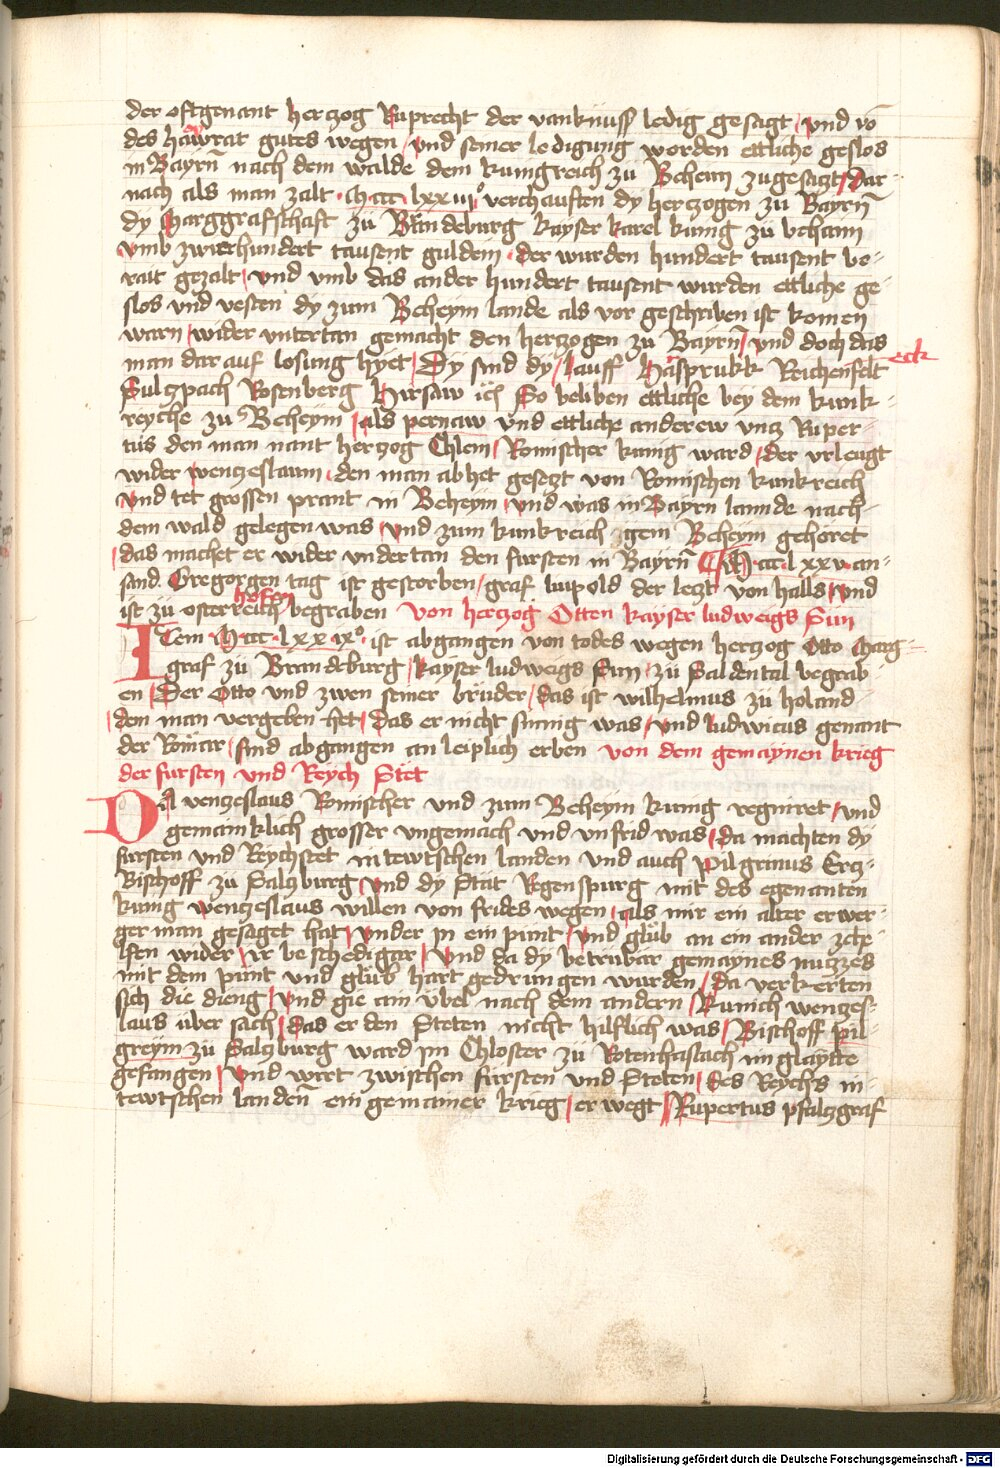 der oftgenant herczog Ruprecht der vanknüss ledig gesagt / und vō
des hawrat gutes wegen / und seiner ledigung worden ettliche geslos
in Bayrn̄ nach dem walde dem kunigreich zu Beheim zugesagt / Dar
nach als man zalt · Mccc lxxiijº verchauften dy herczogen zu Bayrn̄
dy Marggrafschaft zu Brandeburg kayser karel kunig zu behaim
umb zwirhundert tausent guldein · der wurden hundert tausent be-
rait gezalt / und umb das ander hundert tausent wurden ettliche ge-
slos und vesten dy zum Beheym lande als vor geschriben ist komen
warn / wider untertan gemacht den herczogen zu Bayrn̄ / und doch das
man darauf losung hyet / Dy sind dy / lauff Häsprukk Reichenfelt eck
Sulczpach Rosenberg Hirsaw ich So beliben ettliche bey dem kunk-
reyche zu Beheym / als pernaw und ettliche anderew uncz Ruper-
tus den man nant herczog Chlem / Romischer kunig ward / der urleugt
wider wenczeslaum · den man abhet geseczt von Romischen kunkreich
und tet grossen prant in Beheym / und was in Bayrn lannde nach-
dem wald gelegen was / und zum kunkreich gem Beheym gehöret
/ das machet er wider undertan den fursten in Bayrn̄ Mccc lxxv an-
sand Gregorgen tag ist gestorben / graf lupold der leczt von halls / und
ist zu osterreich hofen begraben von herczog Otten kayser ludweigs Sun
ITem Mccc lxxixº ist abgangen von todes wegen herczog Otto Marg-
graf zu Brandeburg / kayser ludweigs Sun / zu Saldental begrab
en / Der Otto und zwen seiner brüder / das ist wilhelmus zu holand
/ den man vergeben het / das er nicht sinnig was / und ludwicus genant
der Romär / sind abgangen an leiplich erben von dem gemaynen krieg
der fursten und Reych Stet
DA wenczeslaus Romischer und zum Beheym kunig regniret / und
gemainklich grosser ungemach und unfrid was / da machten dy
fursten und Reychstet in tewtschen landen und auch Pilgrimus Ercz-
Bischoff zu Salczburg / und dy Stat Regenspurg mit des egenanten
kunig wenczeslaus willen von frides wegen / als mir ein alter erwer-
ger man gesaget hat / under in ein pünt / und glüb an ein ander ze he-
lfen wider ir beschedigar / und da dy betrubar gemaynes nuczzes
mit dem pünt und glüb hart gedrungen wurden / da verkerten
sich die dieng / und gie ain übel nach dem andern / kunich wenczes-
laus über sach / das er den Steten nicht hilflich was / Bischoff Pil-
greym zu Salczburg ward im Chloster zu Rotenhaslach im glaytte
gefangen / und wirt zwischen fursten und Steten / des Reychs in-
tewtschen landen̄ ein gemainer krieg / erwegt / Rupertus pfalczgraf
Digitalisierung gefördert durch die Deutsche Forschungsgemeinschaft - DFG